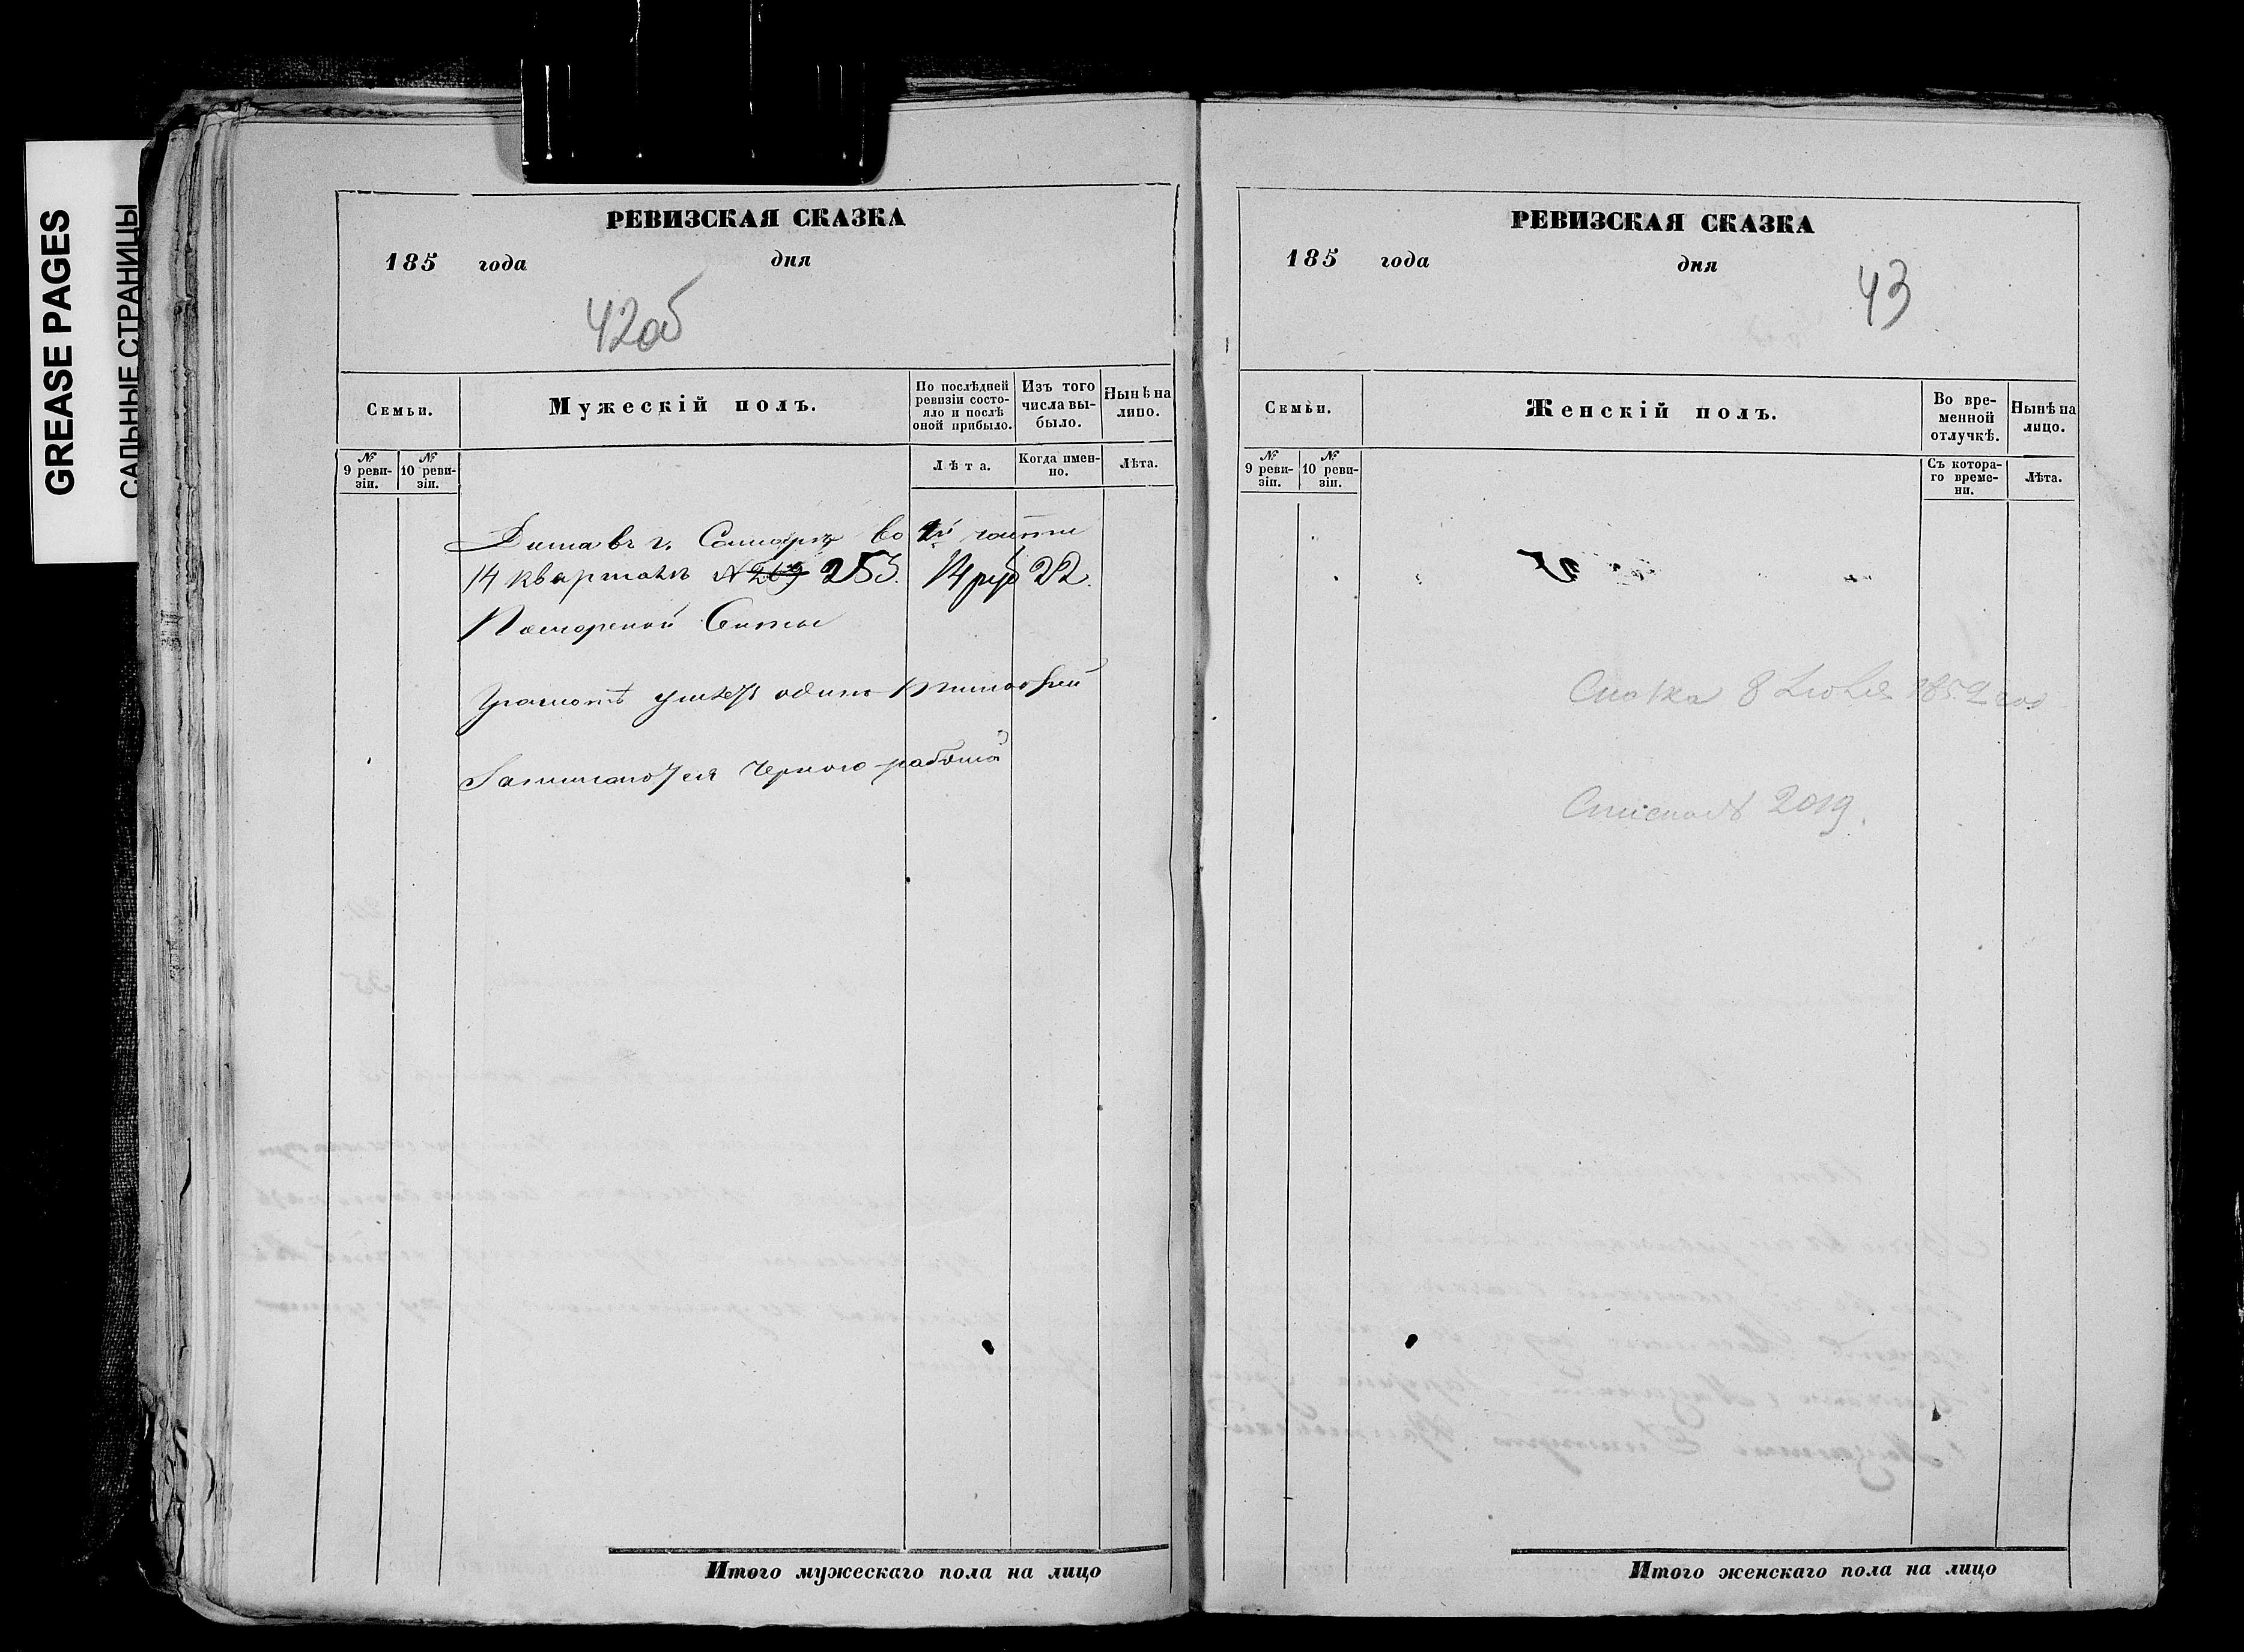 GREASE PAGES
САЛЬНЫЕ СТРАНИЦЫ
РЕВИЗСКАЯ СКАЗКА
185 года дня
42об
Семьи.
Мужескій полъ.
По послѣдней ревизіи состояло и послѣ оной прибыло.
Изъ того числа выбыло.
Нынѣ на лицо.
№ 9 ревизіи.
№ 10 ревизіи.
Лѣта.
Когда именно.
Лѣта.
Дома въ г. Самарѣ во 2й части
14 кварталѣ № 269 253. 14 руб 22.
Поморской Секты
Грамотѣ умѣетъ одинъ Тимофей
Занимаются черною работой
Итого мужескаго пола на лицо
РЕВИЗСКАЯ СКАЗКА
185 года дня
43
Семьи.
Женскій полъ.
Во временной отлучкѣ.
Нынѣ на лицо.
№ 9 ревизіи.
№ 10 ревизіи.
Съ котораго времени.
Лѣта.
8 1852
2019.
Итого женскаго пола на лицо